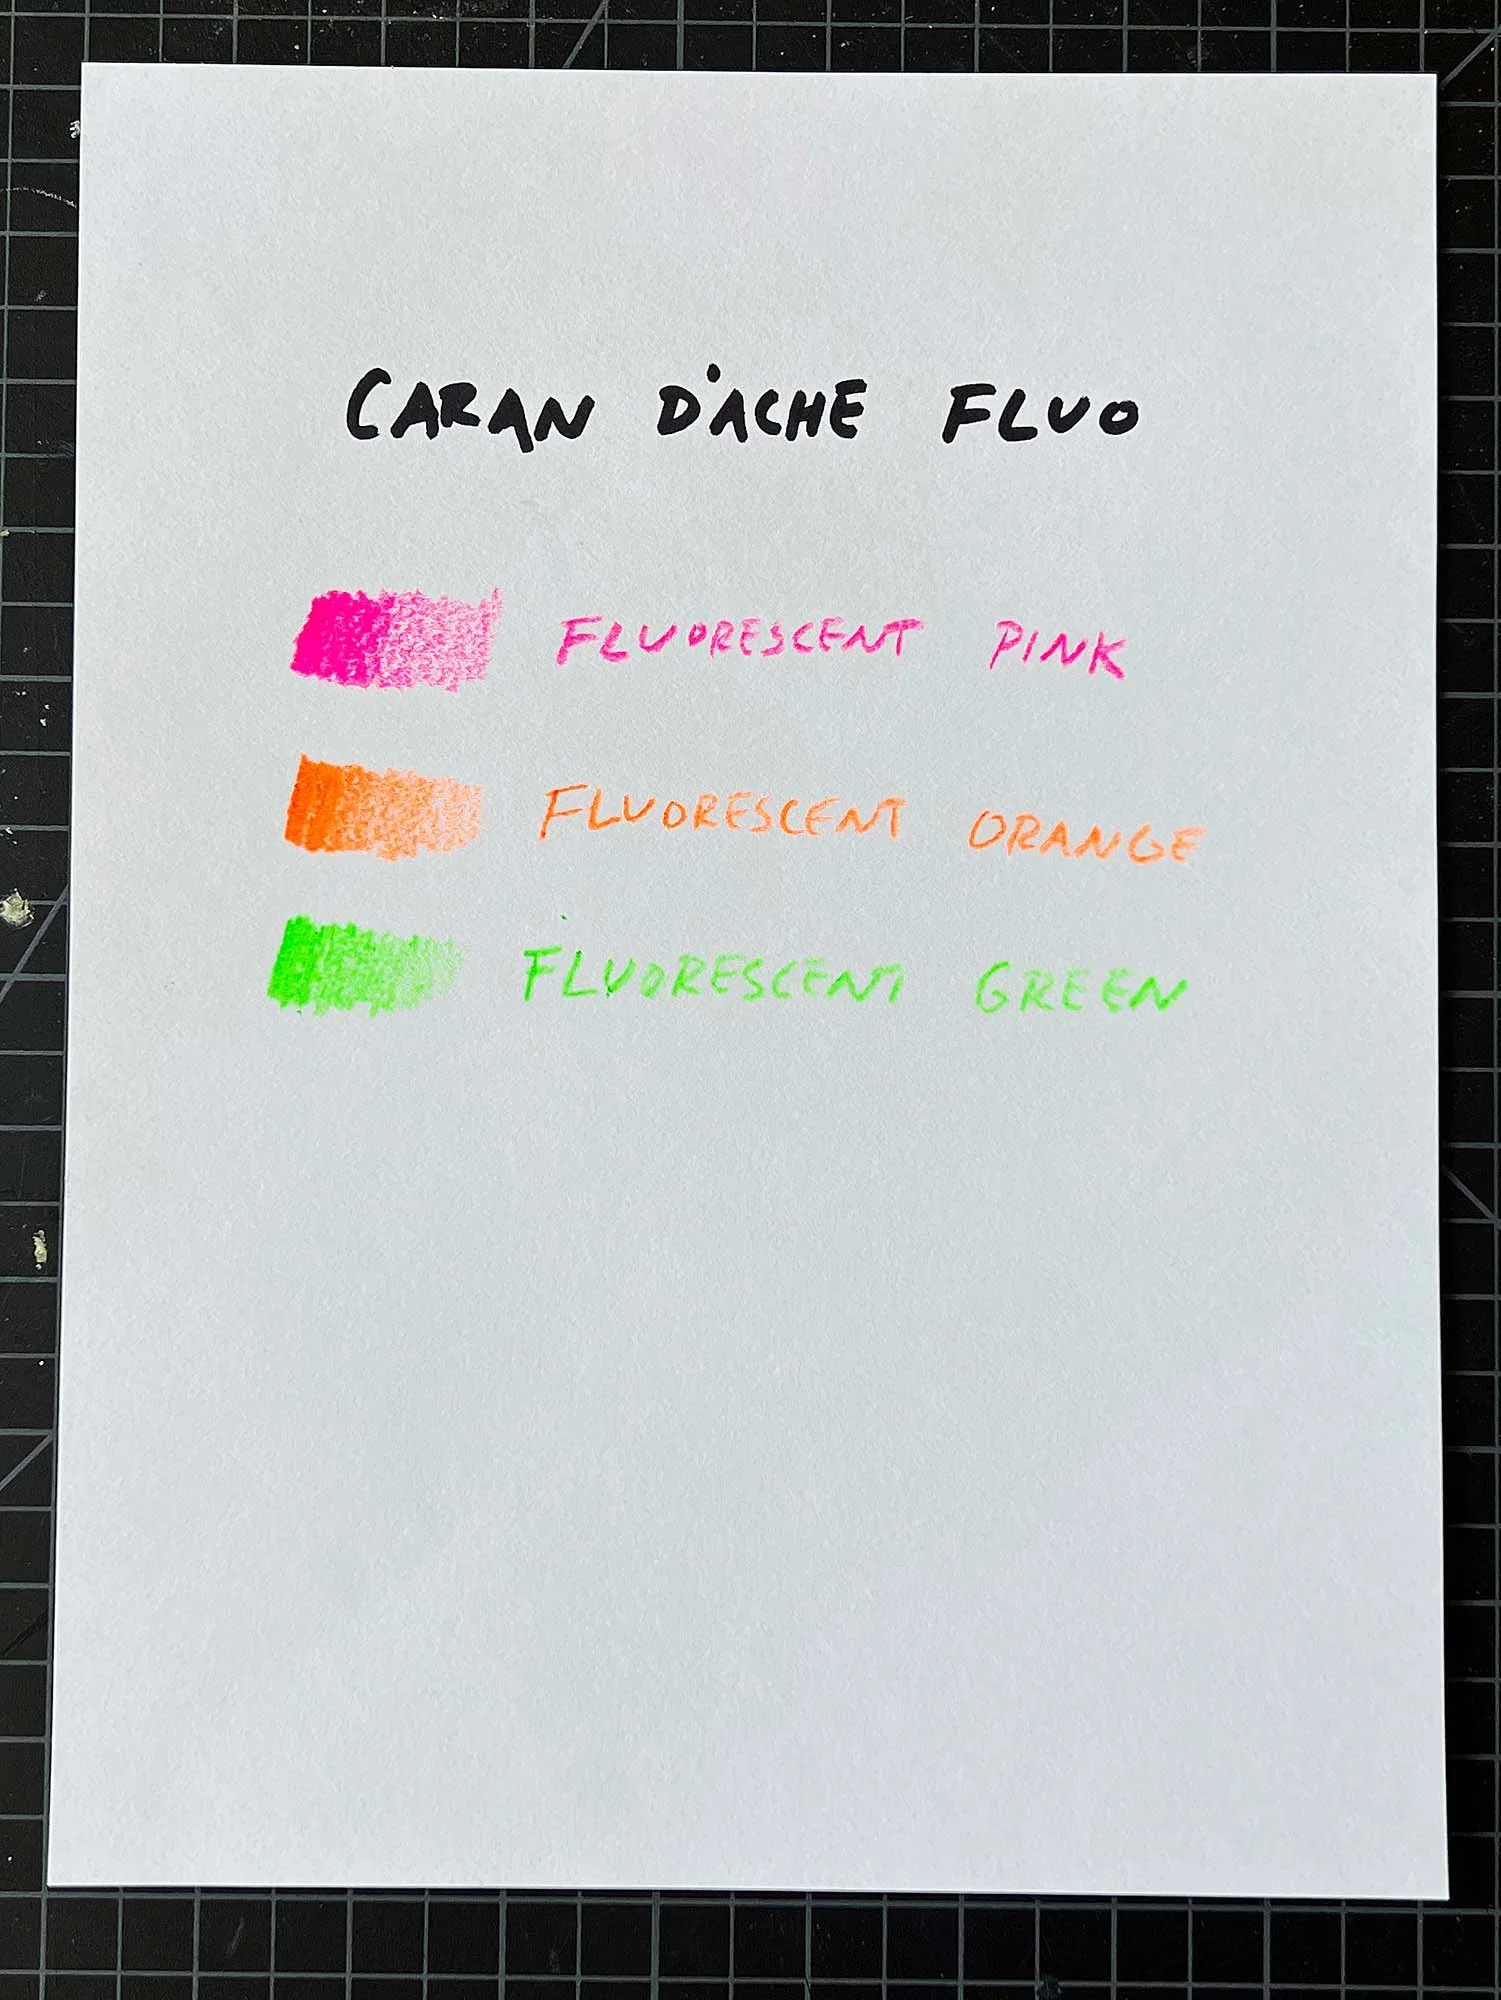 CARAN D'ACHE FLUO
FLUORESCENT PINK
FLUORESCENT ORANGE
FLUORESCENT GREEN